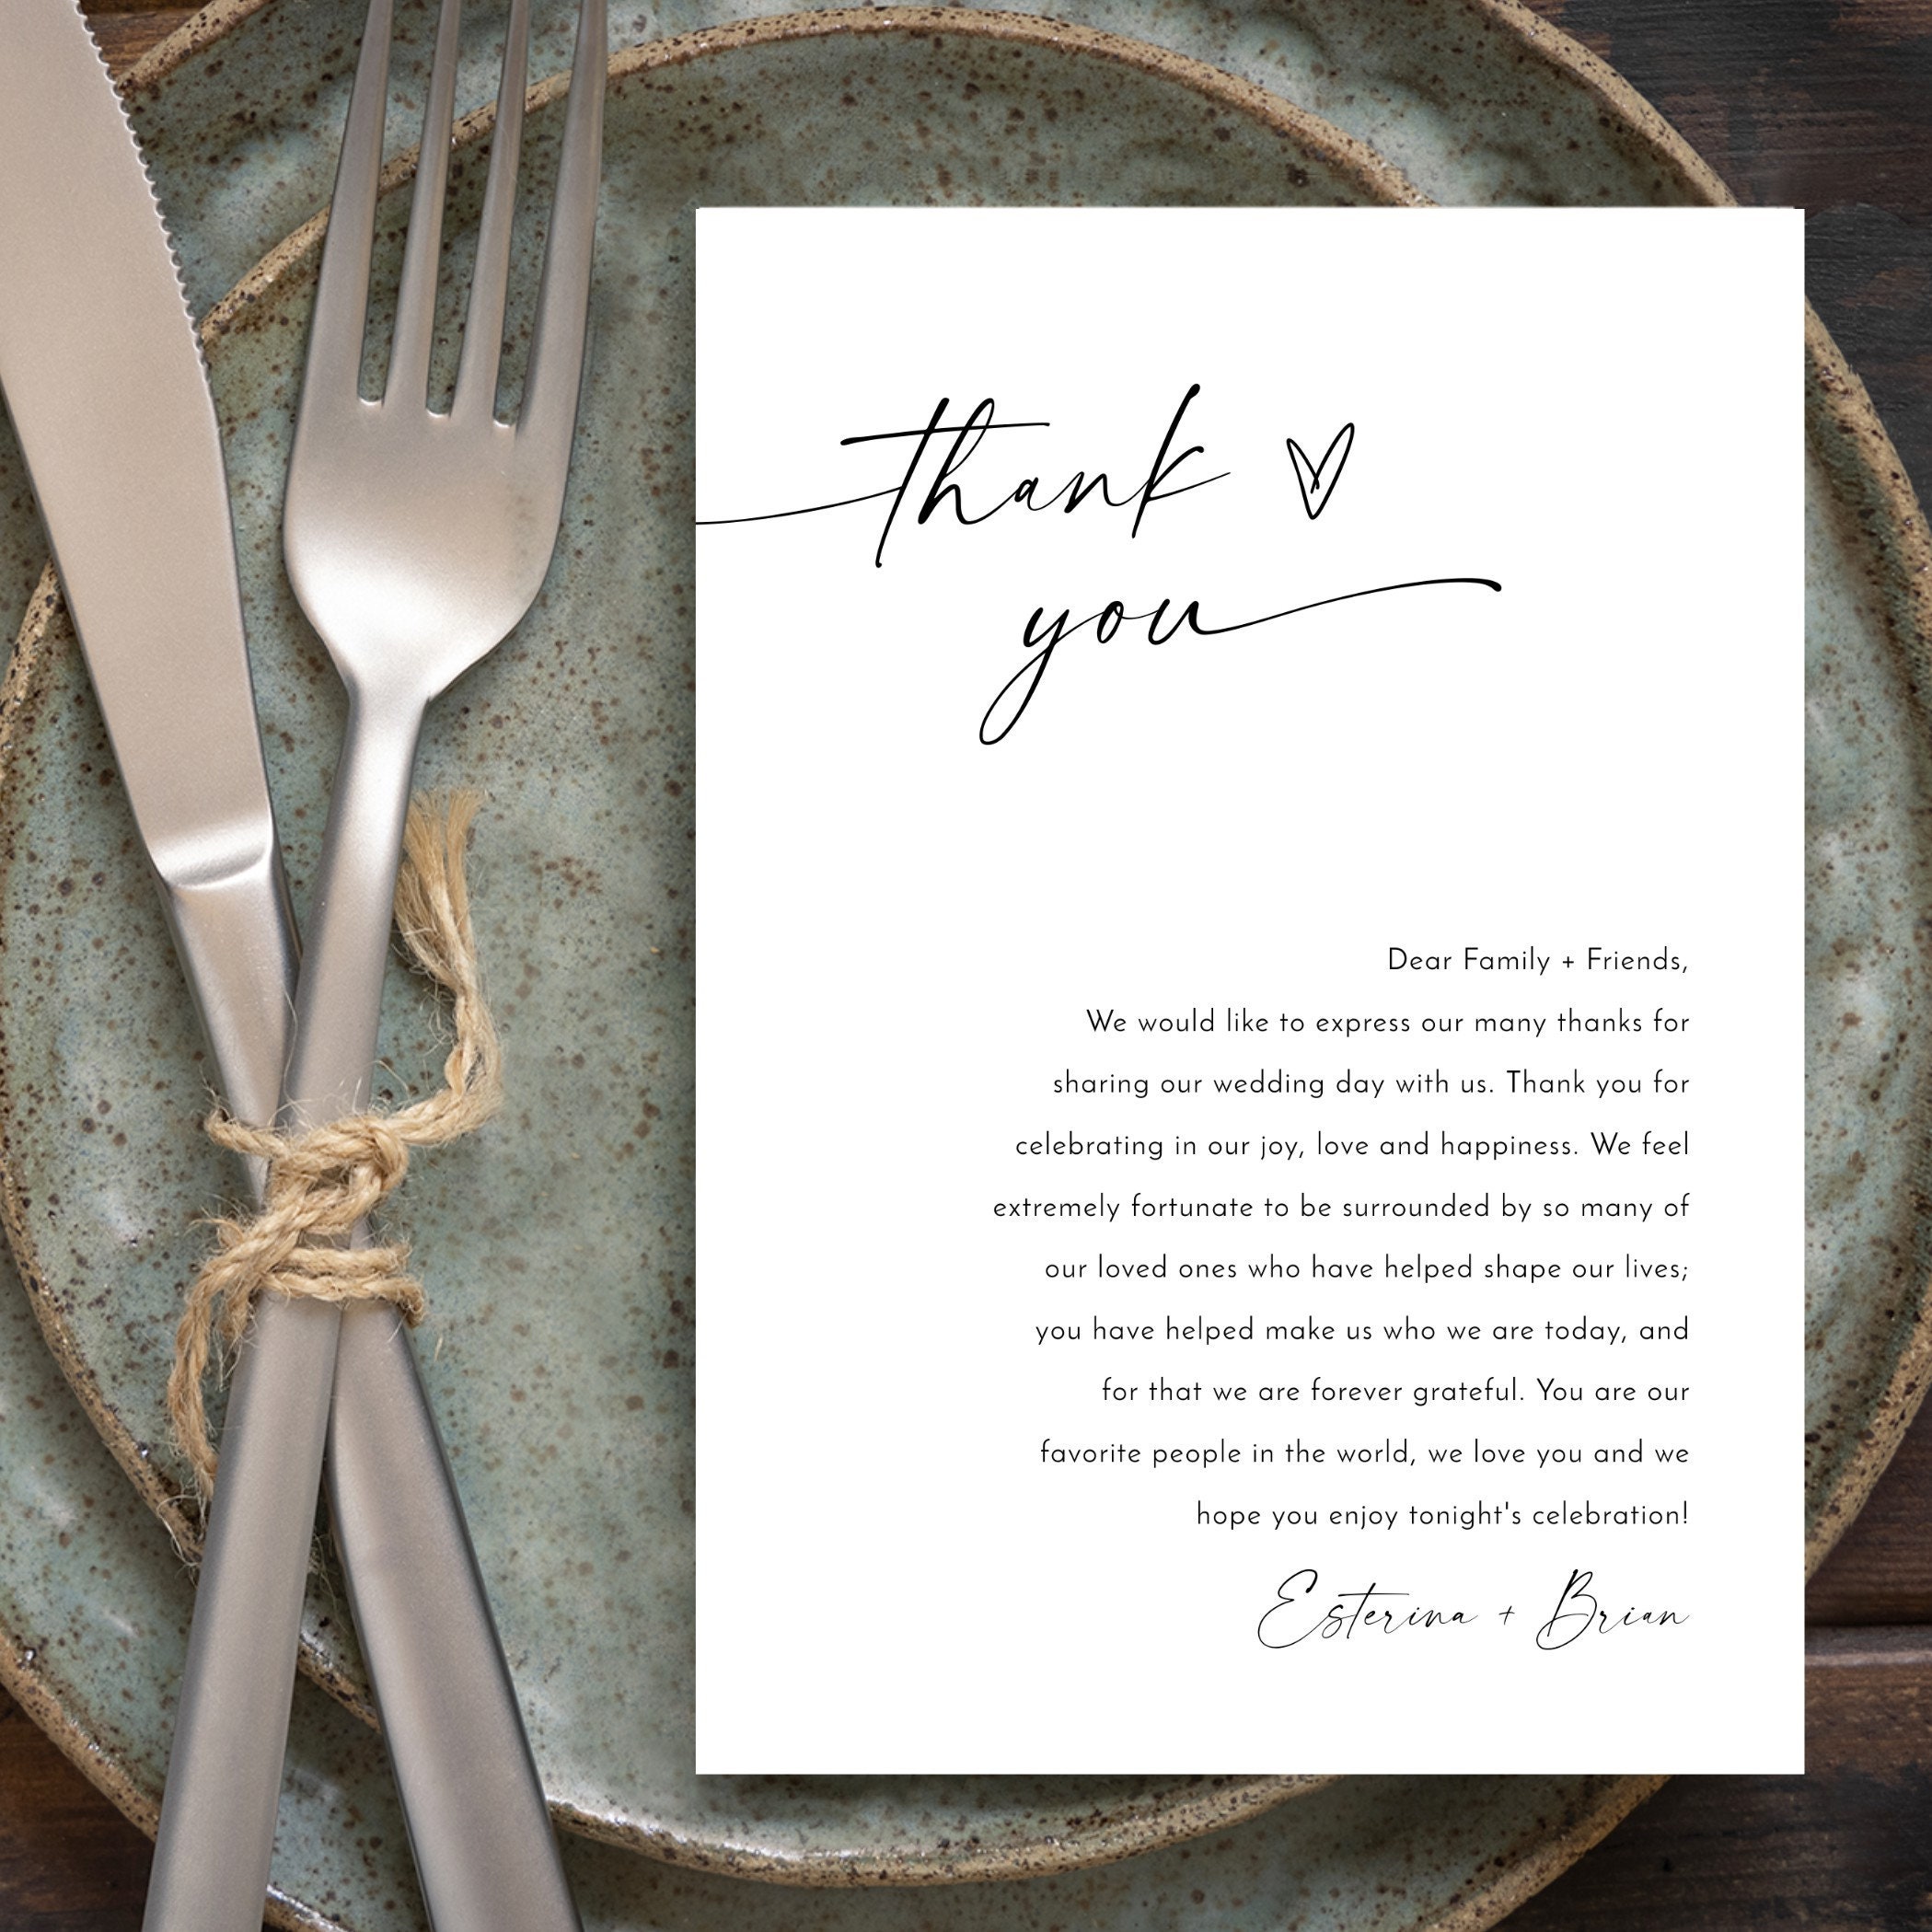 thank
you
Dear Family + Friends,
We would like to express our many thanks for
sharing our wedding day with us. Thank you for
celebrating in our joy, love and happiness. We feel
extremely fortunate to be surrounded by so many of
our loved ones who have helped shape our lives;
you have helped make us who we are today, and
for that we are forever grateful. You are our
favorite people in the world, we love you and we
hope you enjoy tonight's celebration!
Esterina + Brian